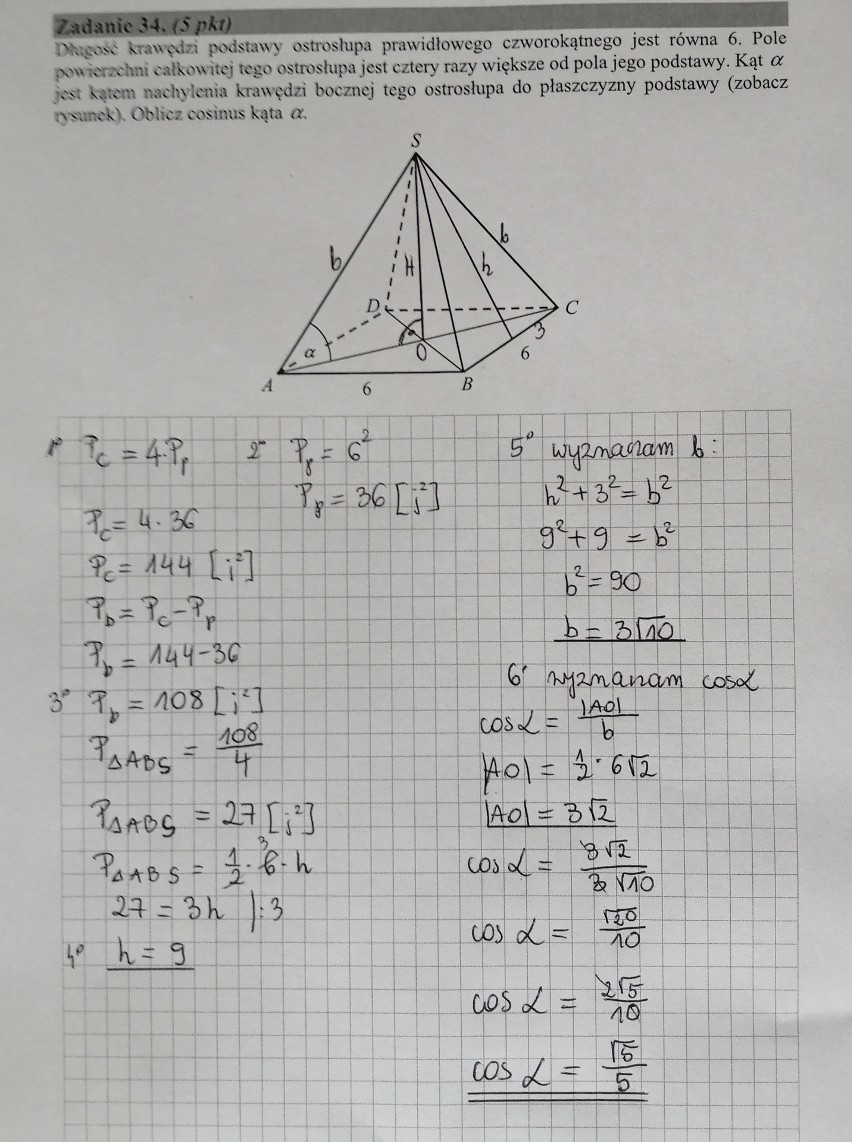 Zadanie 34. (5 pkt)
Długość krawędzi podstawy ostrosłupa prawidłowego czworokątnego jest równa 6. Pole
powierzchni całkowitej tego ostrosłupa jest cztery razy większe od pola jego podstawy. Kąt α
jest kątem nachylenia krawędzi bocznej tego ostrosłupa do płaszczyzny podstawy (zobacz
rysunek). Oblicz cosinus kąta α.
S
b
H
h
b
D
C
α
O
3
6
A
6
B
1° P_c = 4·P_p
2° P_p = 6²
P_p = 36 [j²]
P_c = 4·36
P_c = 144 [j²]
P_b = P_c - P_p
P_b = 144-36
3° P_b = 108 [j²]
P_ΔABS = 108/4
P_ΔABS = 27 [j²]
P_ΔABS = 1/2 · 6 · h
3
27 = 3h |:3
4° h = 9
5° wyznaczam b:
h² + 3² = b²
9² + 9 = b²
b² = 90
b = 3√10
6° wyznaczam cosα
cosα = |AO|/b
|AO| = 1/2 · 6√2
|AO| = 3√2
cosα = 3√2/3√10
cosα = √20/10
cosα = 2√5/10
cosα = √5/5